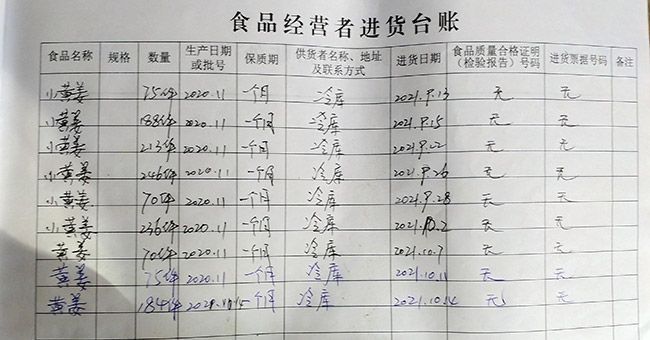 食品经营者进货台账
食品名称 规格 数量 生产日期或批号 保质期 供货者名称、地址及联系方式 进货日期 食品质量合格证明（检验报告）号码 进货票据号码 备注
小黄姜 75件 2020.11 一个月 冷库 2021.9.13 无 无
小黄姜 188件 2020.11 一个月 冷库 2021.9.15 无 无
小黄姜 212件 2020.11 一个月 冷库 2021.9.22 无 无
小黄姜 246件 2020.11 一个月 冷库 2021.9.26 无 无
小黄姜 70件 2020.11 一个月 冷库 2021.9.28 无 无
小黄姜 236件 2020.11 一个月 冷库 2021.10.2 无 无
黄姜 70件 2020.11 一个月 冷库 2021.10.7 无 无
黄姜 75件 2020.11 一个月 冷库 2021.10.11 无 无
黄姜 184件 个月 冷库 2021.10.14 无 无